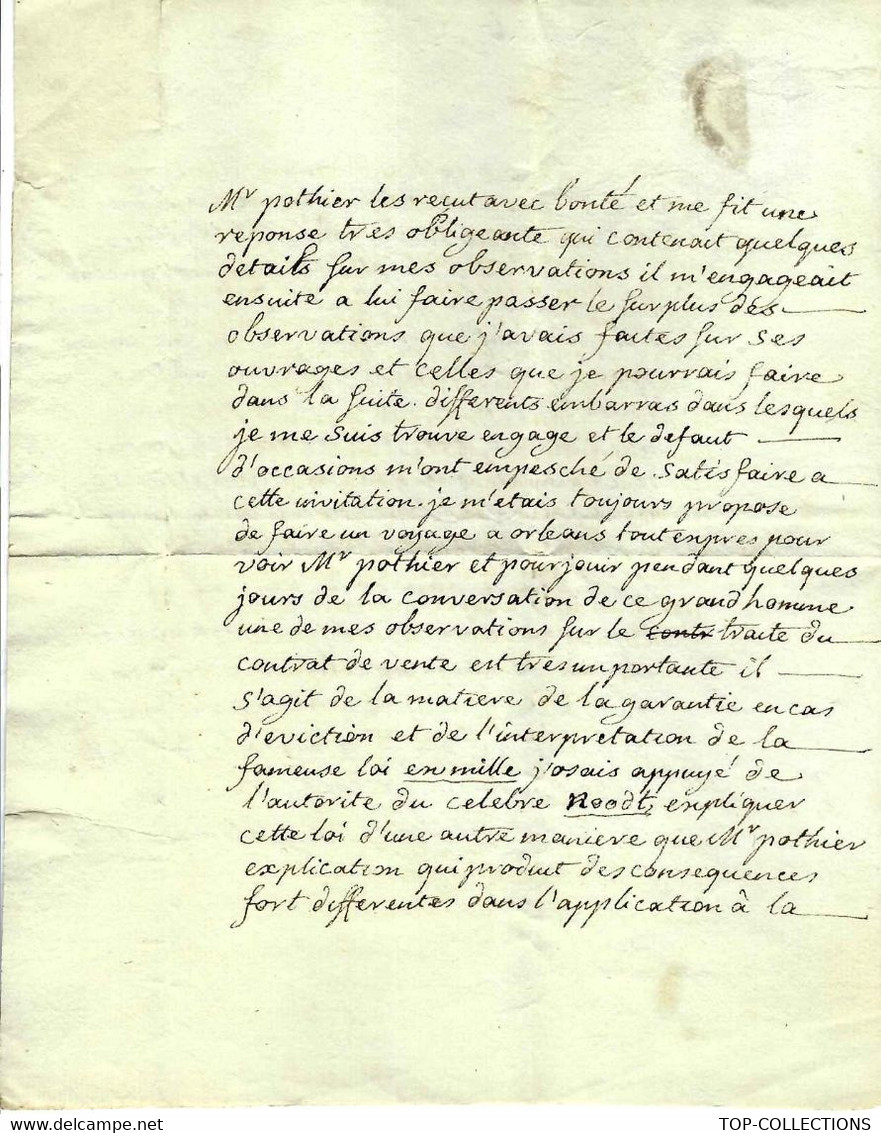 Mr pothier les reçut avec bonté et me fit une
reponse tres obligeante qui contenait quelques
details sur mes observations il m'engageait
ensuite a lui faire passer le surplus des
observations que j'avais faites sur ses
ouvrages et celles que je pourrais faire
dans la suite. differents embarras dans lesquels
je me suis trouve engage et le defaut
d'occasions m'ont empesché de satisfaire a
cette invitation. je m'etais toujours propose
de faire un voyage a orleans tout enpres pour
voir Mr pothier et pour jouir pendant quelques
jours de la conversation de ce grand homme
une de mes observations sur le contr traite du
contrat de vente est tres importante il
s'agit de la matiere de la garantie en cas
d'eviction et de l'interpretation de la
fameuse loi ex mille j'osais appuyé de
l'autorite du celebre Noodt, expliquer
cette loi d'une autre maniere que Mr pothier
explication qui produit des consequences
fort differentes dans l'application à la
TOP-COLLECTIONS